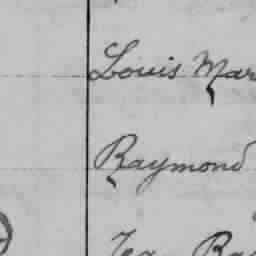 Louis Mar
Raymond